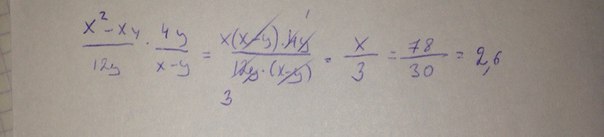 x² - xy / 12y · 4y / x-y = x(x-y)·4y / 12y·(x-y) = x / 3 = 78 / 30 = 2,6
1
3